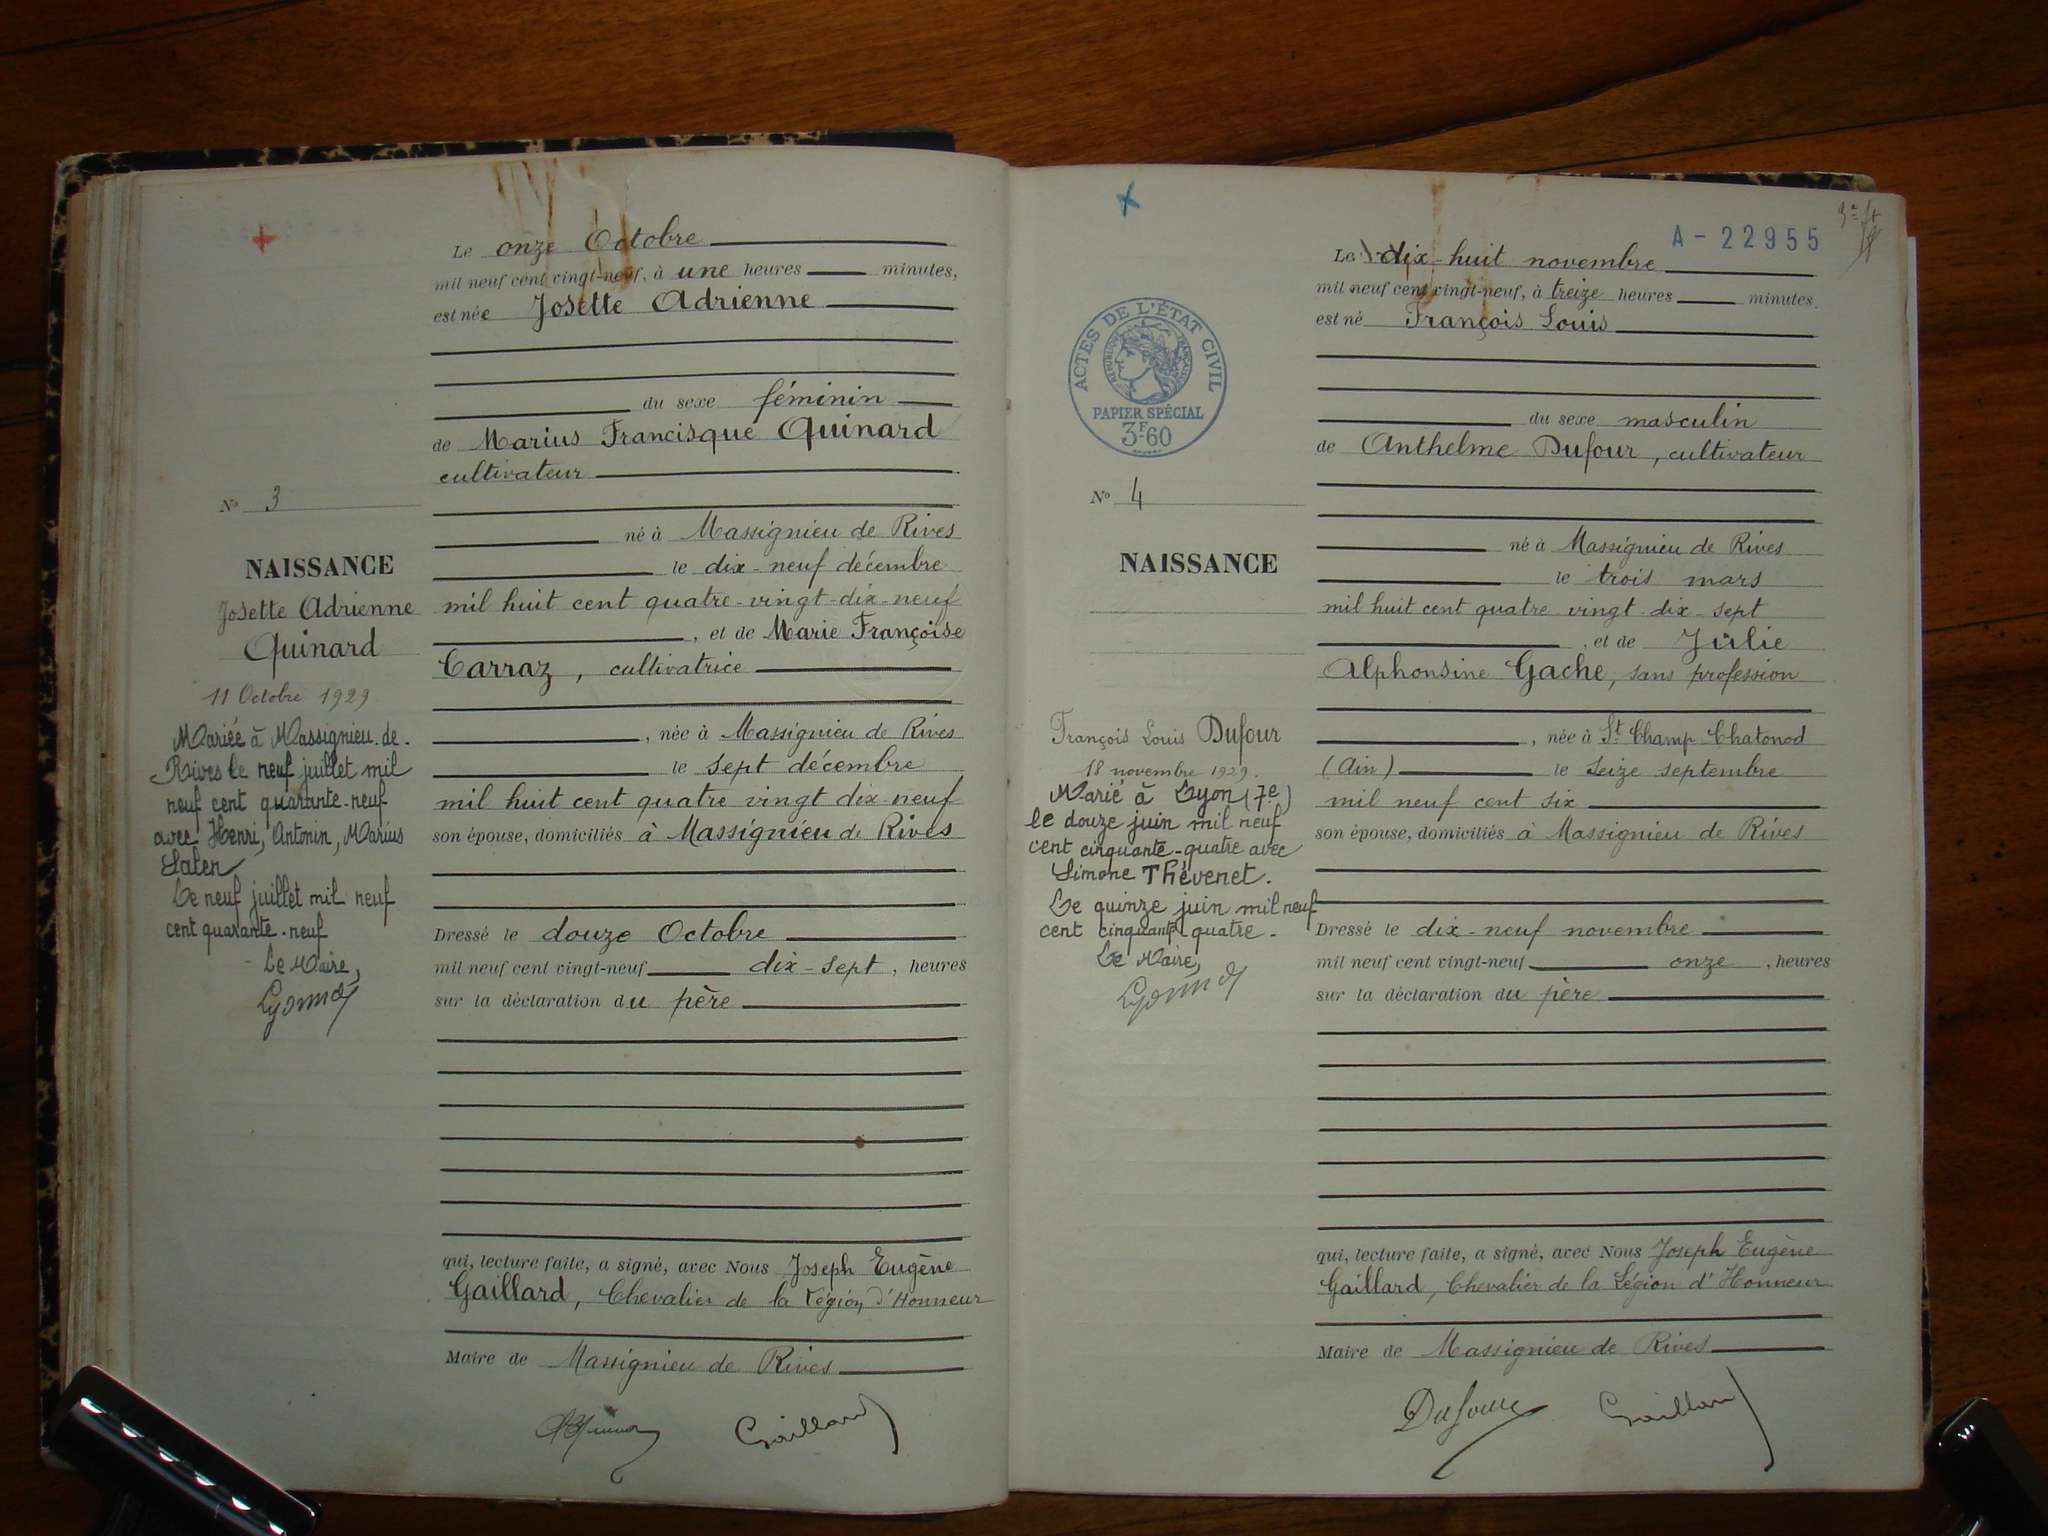 Le onze Octobre
mil neuf cent vingt-neuf, à une heures minutes,
est née Josette Adrienne
du sexe féminin
de Marius Francisque Quinard
cultivateur
né à Massignieu de Rives
le dix-neuf décembre
mil huit cent quatre-vingt-dix-neuf
, et de Marie Françoise
Carraz, cultivatrice
, née à Massignieu de Rives
le sept décembre
mil huit cent quatre vingt dix-neuf
son épouse, domiciliés à Massignieu de Rives
Dressé le douze Octobre
mil neuf cent vingt-neuf dix-sept, heures
sur la déclaration du père
qui, lecture faite, a signé, avec Nous Joseph Eugène
Gaillard, Chevalier de la Légion d'Honneur
Maire de Massignieu de Rives
Gaillard
No 3
NAISSANCE
Josette Adrienne
Quinard
11 Octobre 1929
Mariée à Massignieu-de-
Rives le neuf juillet mil
neuf cent quarante-neuf
avec Henri, Antonin, Marius
Le neuf juillet mil neuf
cent quarante-neuf
Le Maire,
A-22955
Le dix-huit novembre
mil neuf cent vingt-neuf, à treize heures minutes.
est né François Louis
du sexe masculin
de Anthelme Dufour, cultivateur
né à Massignieu de Rives
le trois mars
mil huit cent quatre vingt dix-sept
, et de Julie
Alphonsine Gache, sans profession
, née à St Champ-Chatonod
(Ain) le seize septembre
mil neuf cent six
son épouse, domiciliés à Massignieu de Rives
Dressé le dix-neuf novembre
mil neuf cent vingt-neuf onze, heures
sur la déclaration du père
qui, lecture faite, a signé, avec Nous Joseph Eugène
Gaillard, Chevalier de la Légion d'Honneur
Maire de Massignieu de Rives
Dufour Gaillard
ACTES DE L'ÉTAT CIVIL
RÉPUBLIQUE FRANÇAISE
PAPIER SPÉCIAL
3F60
No 4
NAISSANCE
François Louis Dufour
18 novembre 1929.
Marié à Lyon (7e)
le douze juin mil neuf
cent cinquante-quatre avec
Simone Thévenet.
Le quinze juin mil neuf
cent cinquante-quatre-
Le Maire,